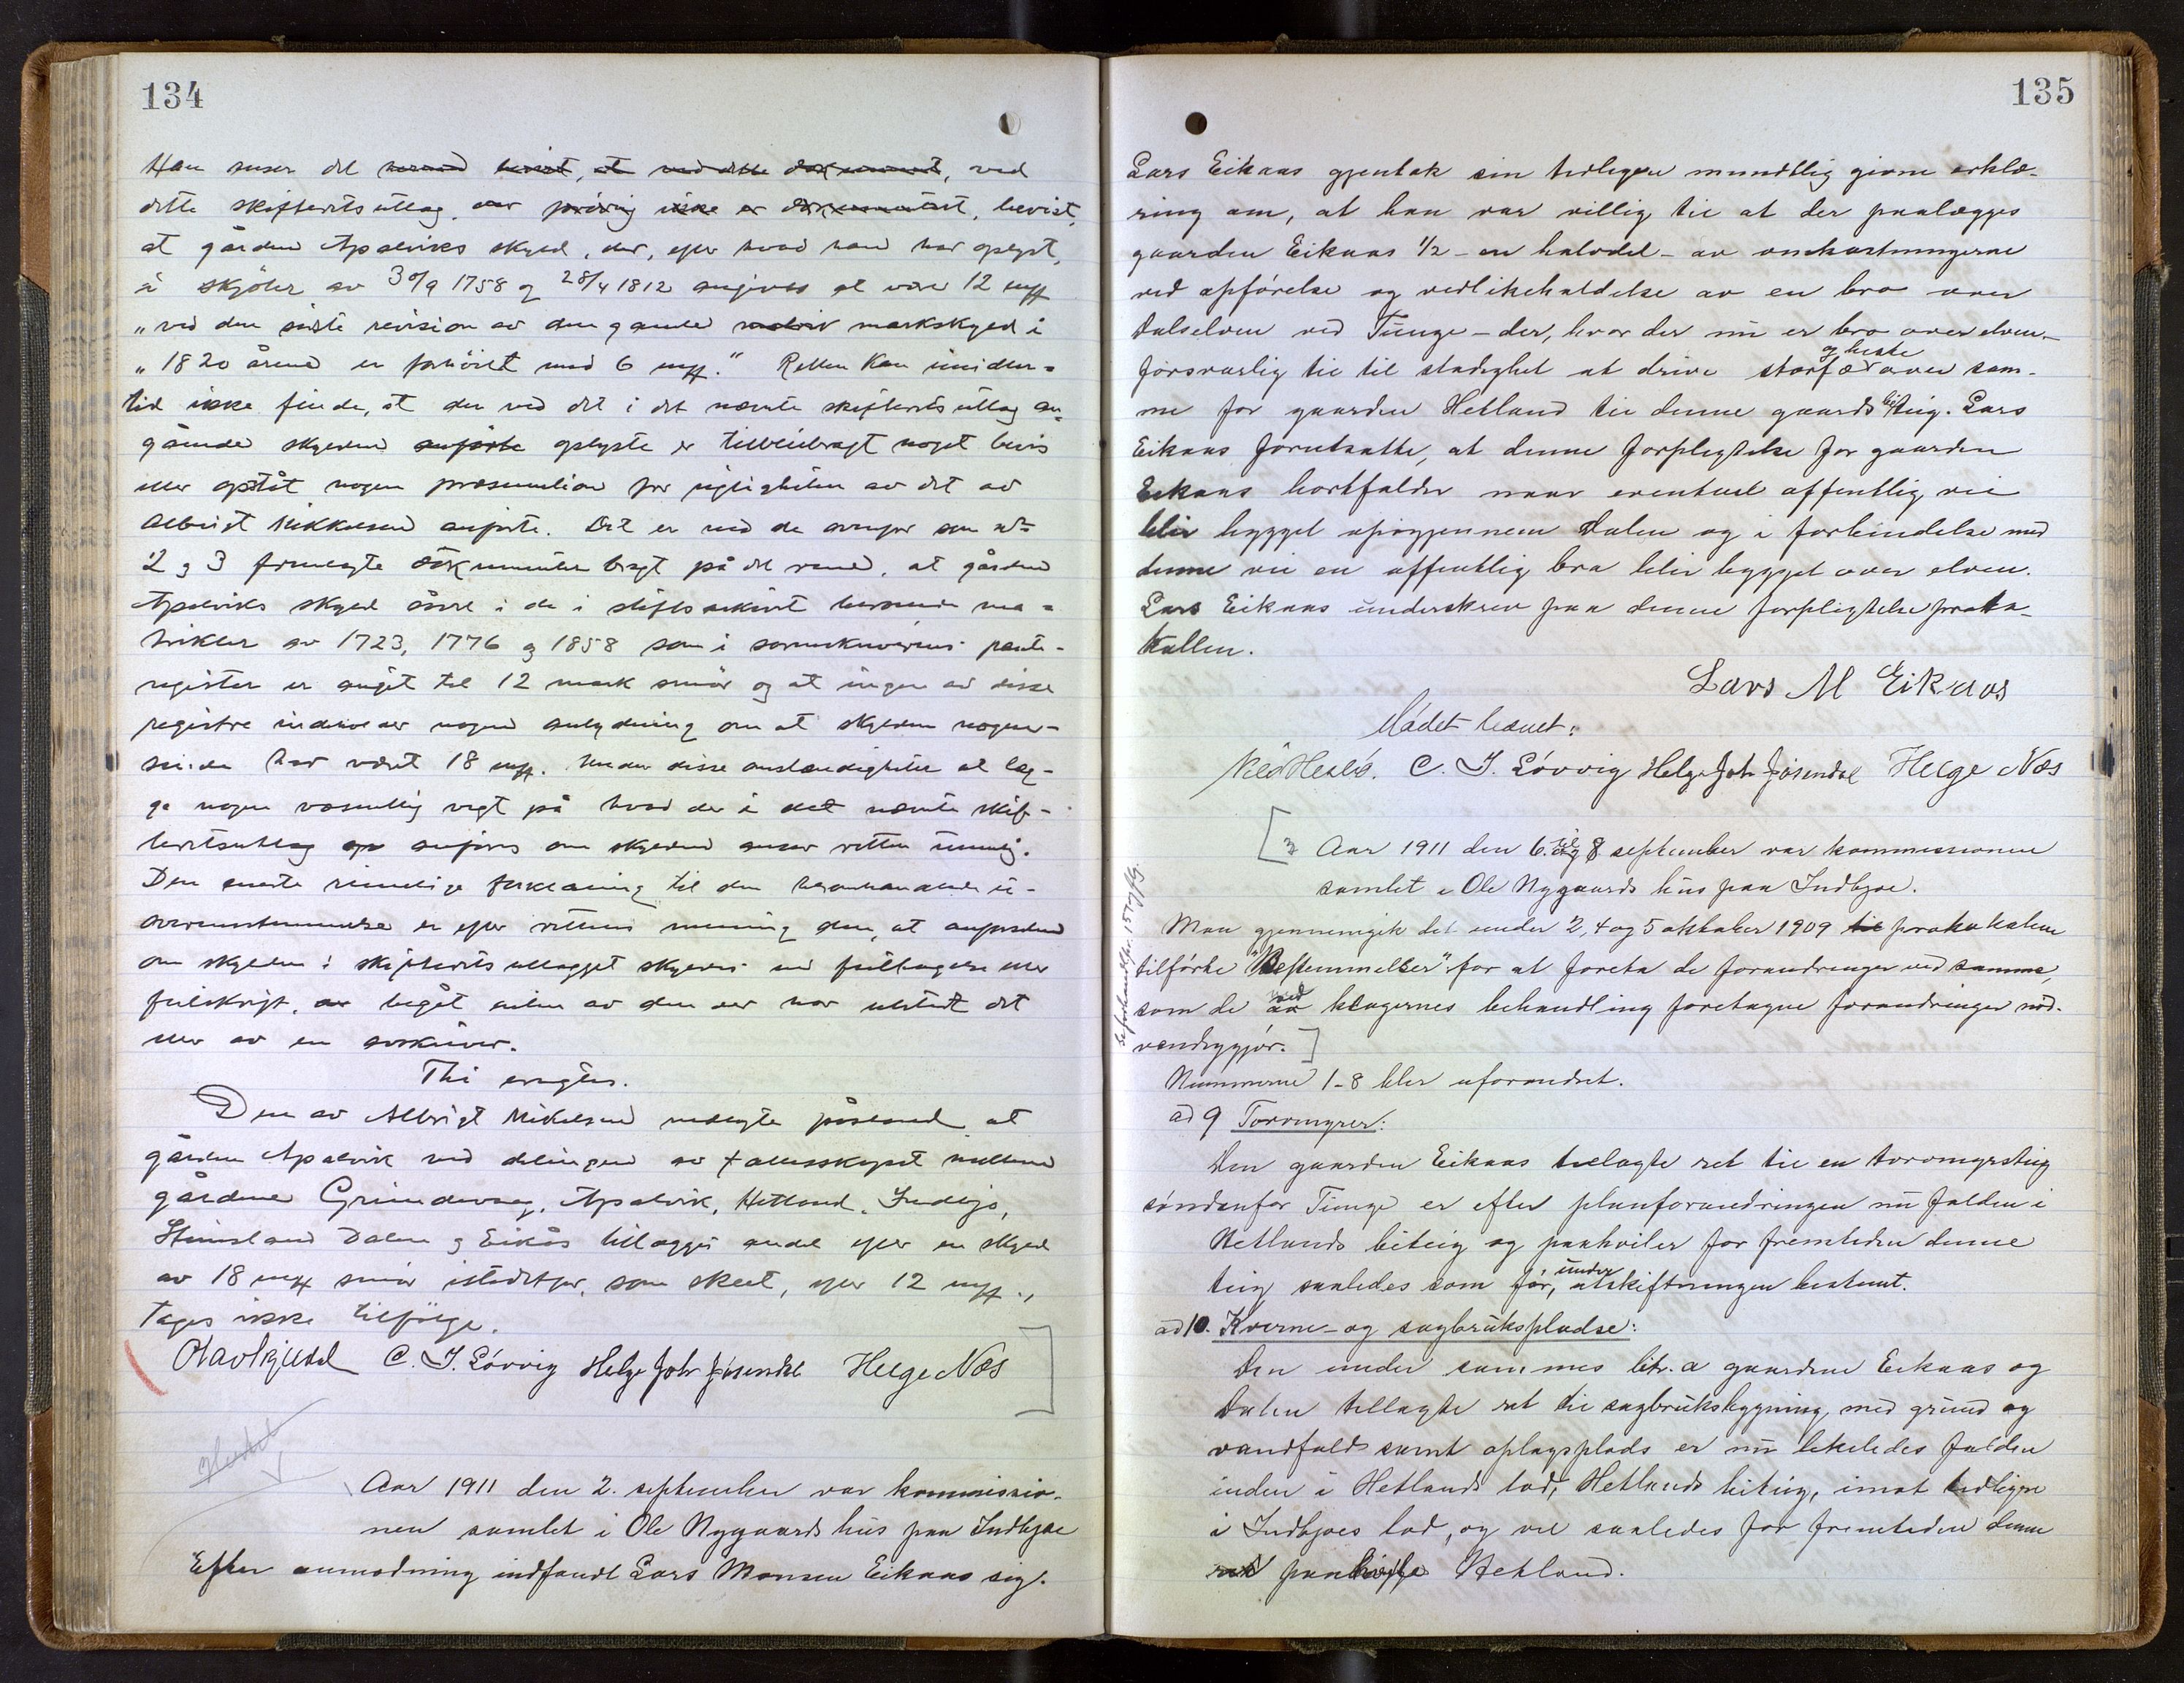 134
Han anser det ved
dette skifteretsutlæg, bevist,
at gården Apalviks skyld, der, efter hvad han har oplyst,
i skjøter av 30/9 1758 og 28/4 1812 angives at være 12 mrk
„ved den siste revision av den gamle markskyld i
„1820 årene er forhöiet med 6 mrk." Retten kan imidler-
tid ikke finde, at der ved det i det nævnte skifteretsutlæg an-
gående skylden oplyste er tilveiebragt noget bevis
eller opståt nogen præsumtion for rigtigheten av det av
Albrigt Mikkelsen anførte. Det er ved de som nr
2 og 3 fremlagte dokumenter bragt på det rene, at gården
Apalviks skyld såvel i de i stiftsarkivet beroende ma-
trikler av 1723, 1776 og 1858 som i sorenskriverens pante-
register er angit til 12 mark smör og at ingen av disse
registre indeholder nogen antydning om at skylden nogen-
sinde har været 18 mrk. Under disse omstændigheter at læg-
ge nogen væsentlig vegt på hvad der i det nævnte skif-
teretsutlæg anføres om skylden anser retten umulig.
Den eneste rimelige forklaring til den u-
overensstemmelse er efter rettens mening den, at anførslen
om skylden i skifteretsutlægget skyldes en feiltagelse eller
feilskrift, begåt enten av den der har utstedt det
eller av en avskriver.
Thi eragtes.
Den av Albrigt Mikkelsen nedlagte påstand at
gården Apalvik ved delingen av fællesskapet mellem
gårdene Grindevag, Apalvik, Hetland, Indbjo,
Stensland Dalen og Eikås tillægges andel efter en skyld
av 18 mrk smör istedetfor, som skeet, efter 12 mrk.,
tages ikke tilfölge.
C. I. Lövvig Helge Joh Jösendal Helge Næs
Aar 1911 den 2. september var kommissio-
nen samlet i Ole Nygaards hus paa Indbjoe
Efter anmodning indfandt Lars Monsen Eikaas sig.
135
Lars Eikaas gjentok sin tidligere mundtlig givne erklæ-
ring om, at han var villig til at der paalægges
gaarden Eikaas 1/2 - en halvdel - av omkostningerne
ved opførelse og vedlikeholdelse av en bro over
Dalselven ved Tunge - der, hvor der nu er bro over elven -
forsvarlig til til stadighet at drive storfæ og heste over sam-
me for gaarden Hetland til denne gaards biteig. Lars
Eikaas forutsatte, at denne forpligtelse for gaarden
Eikaas bortfalder naar eventuel offentlig vei
blir bygget opigjennem Dalen og i forbindelse med
denne vei en offentlig bro blir bygget over elven.
Lars Eikaas underskrev paa denne forpligtelse proto-
kollen.
Lars M Eikaas
Mødet hævet:
C. I. Lövvig Helge Joh Jösendal Helge Næs
Aar 1911 den 6. til 8 september var kommissionen
samlet i Ole Nygaards hus paa Indbjoe.
Man gjennemgik det under 2, 4 og 5 oktober 1909 til protokollen
tilførte "Bestemmelser" for at foreta de forandringer ved samme,
som de ved klagernes behandling foretagne forandringer nød-
vendiggjør.]
Nummerne 1-8 blir uforandret.
ad 9 Torvmyrer:
Den gaarden Eikaas tillagte ret til en torvmyrsteig
søndenfor Tunge er efter planforandringen nu falden i
Hetlands biteig og paahviler for fremtiden denne
teig saaledes som før, under utskiftningen bestemt.
ad 10. Kverne- og sagbrukspladse:
Den under sammes litr. a gaardene Eikaas og
Dalen tillagte ret til sagbruksbygning med grund og
vandfald samt oplagsplads er nu likeledes falden
inden i Hetlands lod, Hetlands biteig, imot tidligere
i Indbjoes lod, og vil saaledes for fremtiden denne
ret paahvile Hetland.